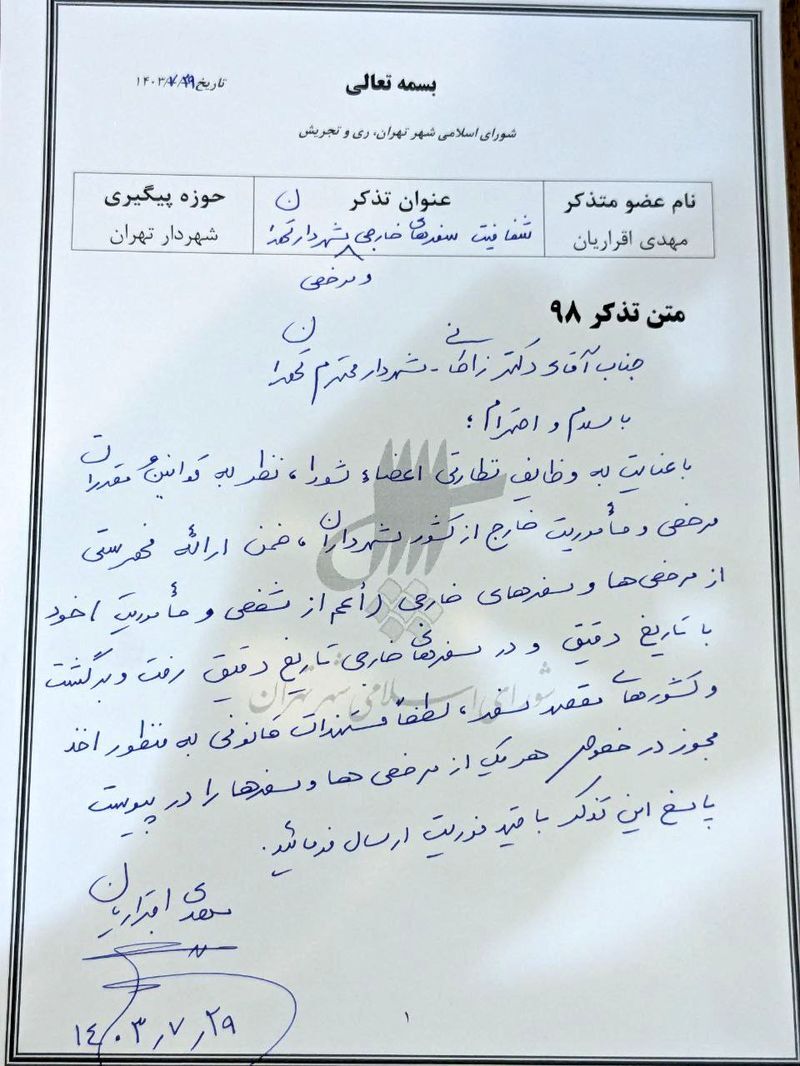 بسمه تعالی
تاریخ ۱۴۰۳/۷/۲۹
شورای اسلامی شهر تهران، ری و تجریش
نام عضو متذکر
عنوان تذکر
حوزه پیگیری
مهدی اقراریان
شفافیت سفرهای خارجی شهردار تهران
و مرخصی
شهردار تهران
متن تذکر ۹۸
جناب آقای دکتر زاکانی - شهردار محترم تهران
با سلام و احترام؛
با عنایت به وظایف نظارتی اعضاء شورا، نظر به قوانین و مقررات
مرخصی و مأموریت خارج از کشور شهرداران، ضمن ارائه فهرستی
از مرخصی‌ها و سفرهای خارجی (أعم از شخصی و مأموریت) خود
با تاریخ دقیق و در سفرهای خارجی تاریخ دقیق رفت و برگشت
و کشورهای مقصد سفر، لطفاً مستندات قانونی به منظور اخذ
مجوز در خصوص هر یک از مرخصی ها و سفرها را در پیوست
پاسخ این تذکر با قید فوریت ارسال فرمائید.
شورای اسلامی شهر تهران
مهدی اقراریان
۱۴۰۳٫۷٫۲۹
۱